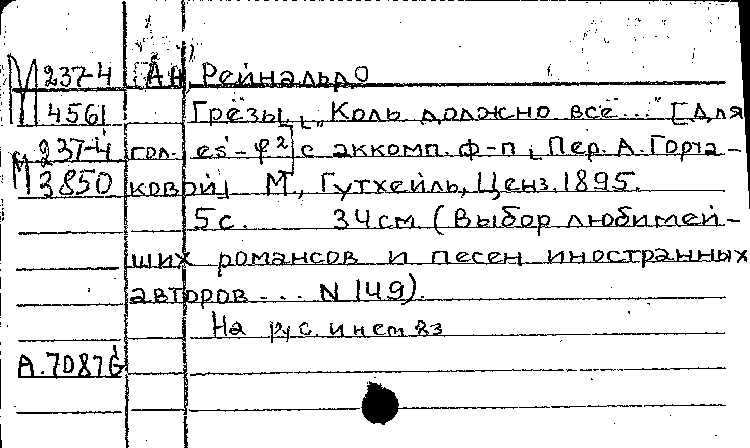 М 237-4 [Ан, Рейнальдо
4561 Грёзы. „Коль должно всё..." [Для
М 237-4 гол. es'-φ²] с аккомп. ф-п. Пер. А. Горча-
3850 ковой. М., Гутхейль, Ценз. 1895.
5 с. 34 см (Выбор любимей-
ших романсов и песен иностранных
авторов ... N 149).
На рус. и нем яз
А.7087б